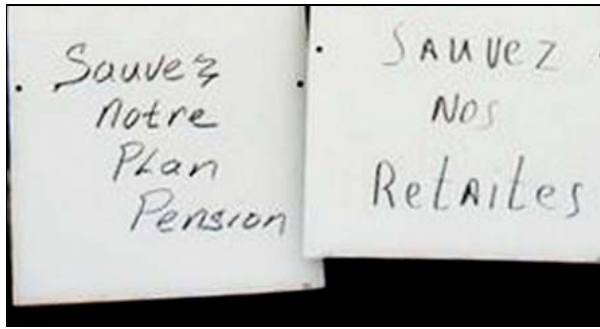 Sauvez
notre
PLan
Pension
SAUVEZ
NOS
RetAites